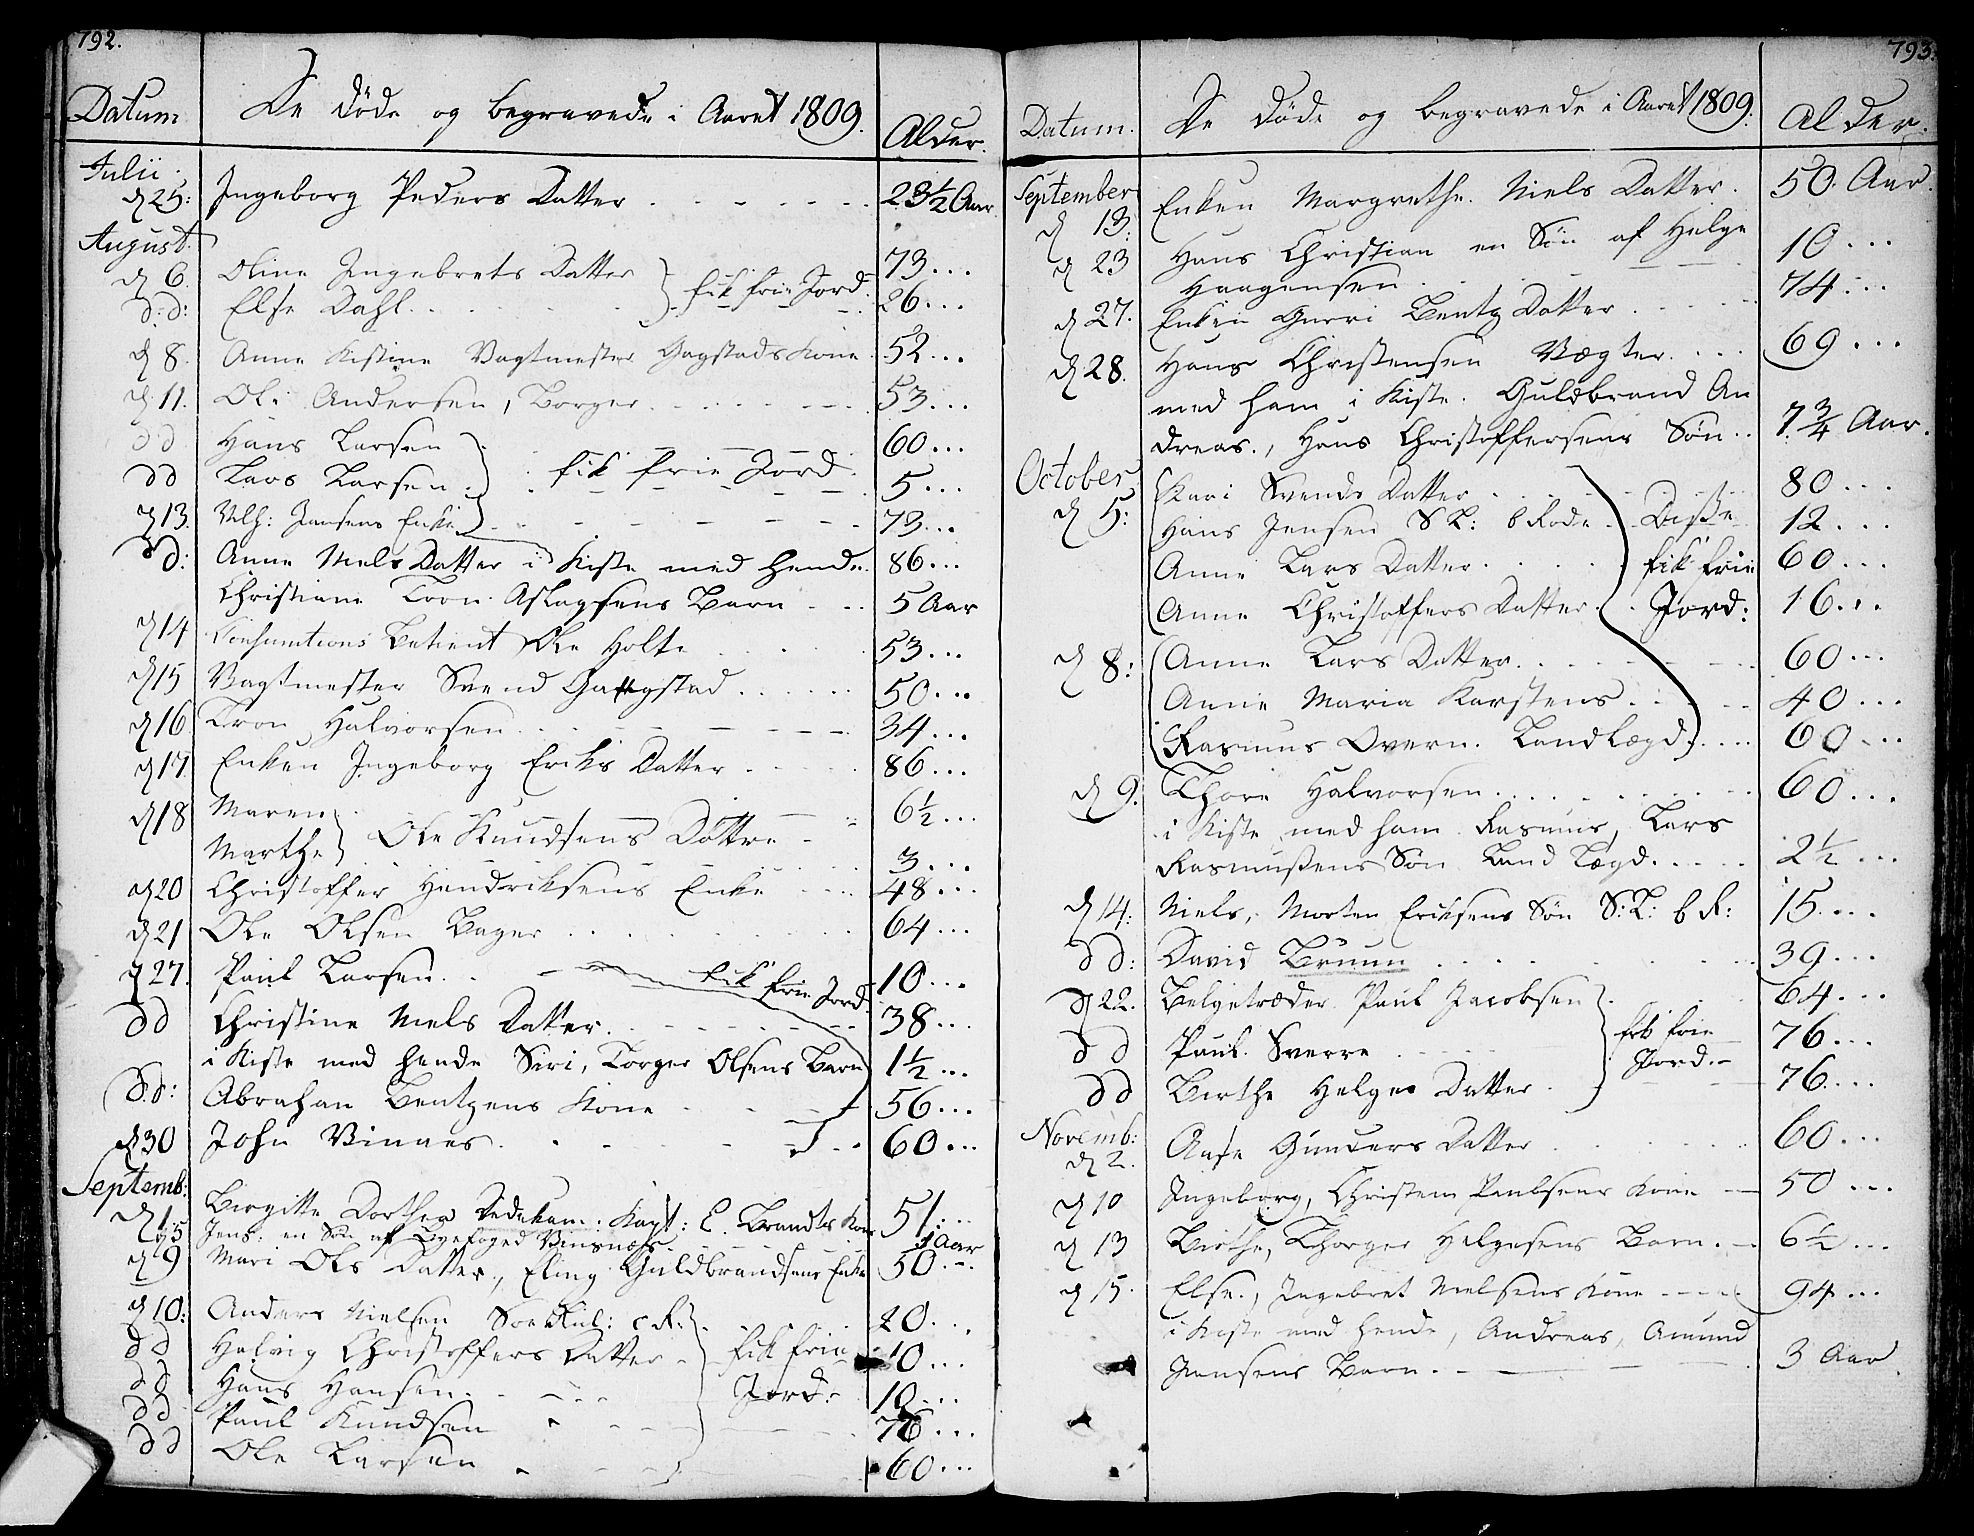 792.
Datum De døde og begravede i Aaret 1809. Alder.
Julii
d 25: Ingeborg Peders Datter 23½ Aar.
August.
d 6. Oline Ingebrets Datter } fik frie Jord 73...
d. d: Else Dahl. 26...
d 8. Anne Kistine Vagtmester Gagstads Kone 52...
d. 11. Ole Andersen, Borger 53...
d d Hans Larsen 60...
d d Lars Larsen } fik frie Jord. 5...
d 13. Vilh: Jansens Enke 73...
d d: Anne Niels Datter i Kiste med hende 86...
Christiane Tron Aslagsens Barn 5 Aar
d 14 Consumtions Betient Ole Holte 53...
d 15 Vagtmester Svend Gaggstad 50...
d 16 Tron Halvorsen 34...
d 17 Enken Ingeborg Eriks Datter 86...
d 18 Maren 6½...
Marthe } Ole Knudsens Døttre 3...
d 20 Christoffer Hendriksens Enke 48...
d 21 Ole Olsen Bager 64...
d 27. Paul Larsen. fik frie Jord 10...
d d Christine Niels Datter. 38...
i Kiste med hende Siri, Torger Olsens Barn 1½...
d. d: Abraham Bentzens Kone 56...
d 30 John Vinnes 60...
Septemb:
d 1 Birgitte Dorthea Dedekam: Kapt: C. Brandts Kone 51...
d 5 Jens: en Søn af Byefoged Vinsnæs. 1 Aar
d 9 Mari Ols Datter, Eling Guldbrandsens Enke 50...
d 10: Anders Nielsen c R: 20...
d d Helvig Christoffers Datter fik frie 10...
d d Hans Hansen. Jord: 10...
d d Paul Knudsen 76...
d d Ole Larsen 60...
793.
Datum. De døde og begravede i Aaret 1809. Alder.
September
d 13: Enken Margrethe Niels Datter. 50. Aar.
d 23 Hans Christian en Søn af Helge 10...
Haagensen
d 27. Enken Gurri Bentz Datter 74...
d 28. Hans Christensen Vægter 69...
med ham i Kiste. Guldbrand An
dreas., Hans Christoffersens Søn.. 7¾ Aar.
October
d 5: Kari Svends Datter 80...
Hans Jensen S L: b Rode Disse 12...
Anne Lars Datter fik frie 60...
Anne Christoffers Datter. Jord: 16...
d 8: Anne Lars Datter. 60...
Anne Maria Karstens 40...
Rasmus Overn. Landlægd. 60...
d 9. Thore Halvorsen 60...
i Kiste med ham Rasmus, Lars
Rasmussens Søn Land Lægd. 2½...
d 14: Niels, Morten Eriksens Søn S: L: b R: 15...
d d: David Bruun 39...
d 22. Belgetræder Paul Jacobsen 64...
d d Paul Sverre } fik frie 76...
d d Berthe Helges Datter Jord. 76...
Novemb:
d 2. Aase Gunders Datter 60...
d 10 Ingeborg, Christen Paulsens Kone 50...
d 13 Birthe, Thorger Helgesens Barn. 6½...
d 15. Else., Ingebret Nielsens Kone 94...
i Kiste med hende, Andreas, Amund
Jansens Barn. 3 Aar.